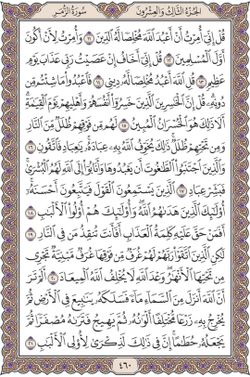 سُورَةُ الزُّمَرِ الجُزْءُ الثَّالِثُ وَالعِشْرُونَ
قُلْ إِنِّي أُمِرْتُ أَنْ أَعْبُدَ اللَّهَ مُخْلِصًا لَّهُ الدِّينَ ١١ وَأُمِرْتُ لِأَنْ أَكُونَ
أَوَّلَ الْمُسْلِمِينَ ١٢ قُلْ إِنِّي أَخَافُ إِنْ عَصَيْتُ رَبِّي عَذَابَ يَوْمٍ
عَظِيمٍ ١٣ قُلِ اللَّهَ أَعْبُدُ مُخْلِصًا لَّهُ دِينِي ١٤ فَاعْبُدُوا مَا شِئْتُم مِّن
دُونِهِ قُلْ إِنَّ الْخَاسِرِينَ الَّذِينَ خَسِرُوا أَنفُسَهُمْ وَأَهْلِيهِمْ يَوْمَ الْقِيَامَةِ
أَلَا ذَٰلِكَ هُوَ الْخُسْرَانُ الْمُبِينُ ١٥ لَهُم مِّن فَوْقِهِمْ ظُلَلٌ مِّنَ النَّارِ
وَمِن تَحْتِهِمْ ظُلَلٌ ذَٰلِكَ يُخَوِّفُ اللَّهُ بِهِ عِبَادَهُ يَا عِبَادِ فَاتَّقُونِ ١٦
وَالَّذِينَ اجْتَنَبُوا الطَّاغُوتَ أَن يَعْبُدُوهَا وَأَنَابُوا إِلَى اللَّهِ لَهُمُ الْبُشْرَىٰ
فَبَشِّرْ عِبَادِ ١٧ الَّذِينَ يَسْتَمِعُونَ الْقَوْلَ فَيَتَّبِعُونَ أَحْسَنَهُ
أُولَٰئِكَ الَّذِينَ هَدَاهُمُ اللَّهُ وَأُولَٰئِكَ هُمْ أُولُو الْأَلْبَابِ ١٨
أَفَمَنْ حَقَّ عَلَيْهِ كَلِمَةُ الْعَذَابِ أَفَأَنتَ تُنقِذُ مَن فِي النَّارِ ١٩
لَٰكِنِ الَّذِينَ اتَّقَوْا رَبَّهُمْ لَهُمْ غُرَفٌ مِّن فَوْقِهَا غُرَفٌ مَّبْنِيَّةٌ تَجْرِي
مِن تَحْتِهَا الْأَنْهَارُ وَعْدَ اللَّهِ لَا يُخْلِفُ اللَّهُ الْمِيعَادَ ٢٠ أَلَمْ تَرَ
أَنَّ اللَّهَ أَنزَلَ مِنَ السَّمَاءِ مَاءً فَسَلَكَهُ يَنَابِيعَ فِي الْأَرْضِ ثُمَّ
يُخْرِجُ بِهِ زَرْعًا مُّخْتَلِفًا أَلْوَانُهُ ثُمَّ يَهِيجُ فَتَرَاهُ مُصْفَرًّا ثُمَّ
يَجْعَلُهُ حُطَامًا إِنَّ فِي ذَٰلِكَ لَذِكْرَىٰ لِأُولِي الْأَلْبَابِ ٢١
٤٦٠